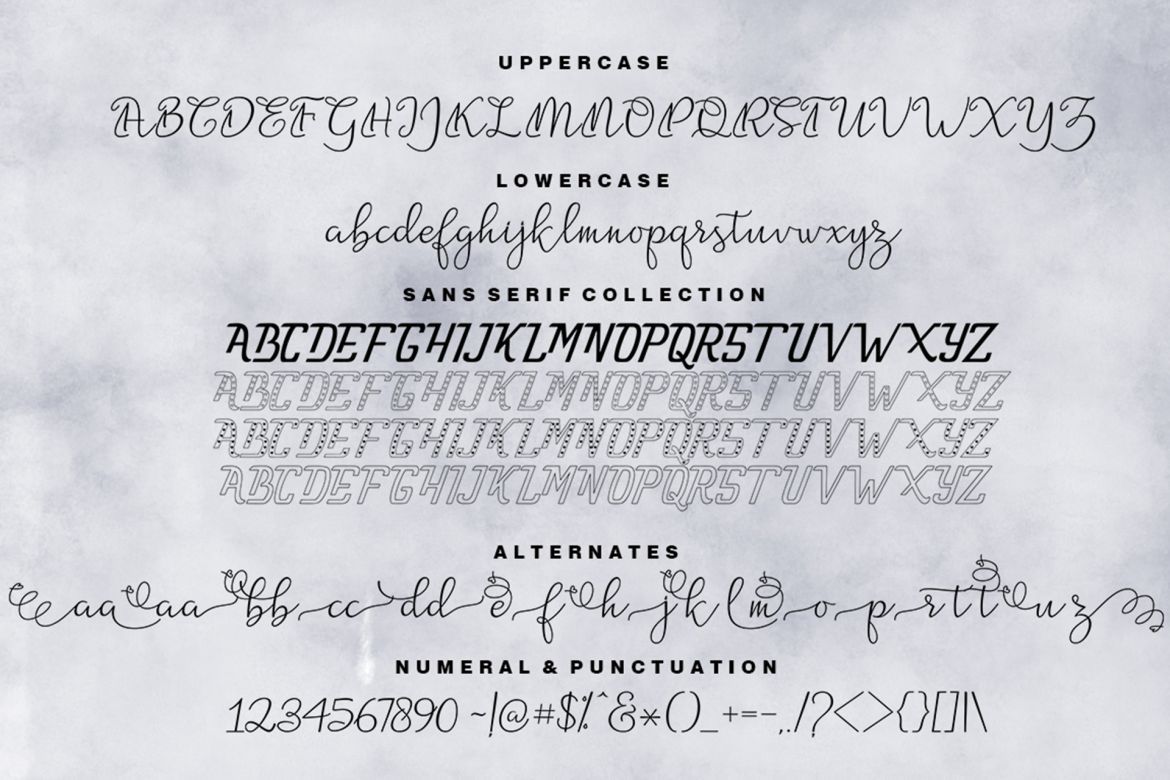 UPPERCASE
ABCDEFGHIJKLMNOPQRSTUVWXYZ
LOWERCASE
abcdefghijklmnopqrstuvwxyz
SANS SERIF COLLECTION
ABCDEFGHIJKLMNOPQRSTUVWXYZ
ABCDEFGHIJKLMNOPQRSTUVWXYZ
ABCDEFGHIJKLMNOPQRSTUVWXYZ
ABCDEFGHIJKLMNOPQRSTUVWXYZ
ALTERNATES
aa aa bb cc dd e f h j k l m o p r t t u z
NUMERAL & PUNCTUATION
1234567890 ~!@#$%^&*()_+=-,./?<>{}[]|\